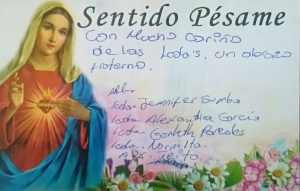 Sentido Pésame
Con Mucho Cariño
de las Lcda's, un abrazo
fraterno.
Lcda. Jennifer Sumba
Lcda. Alexandra García
Lcda.
Lcda. Normita.